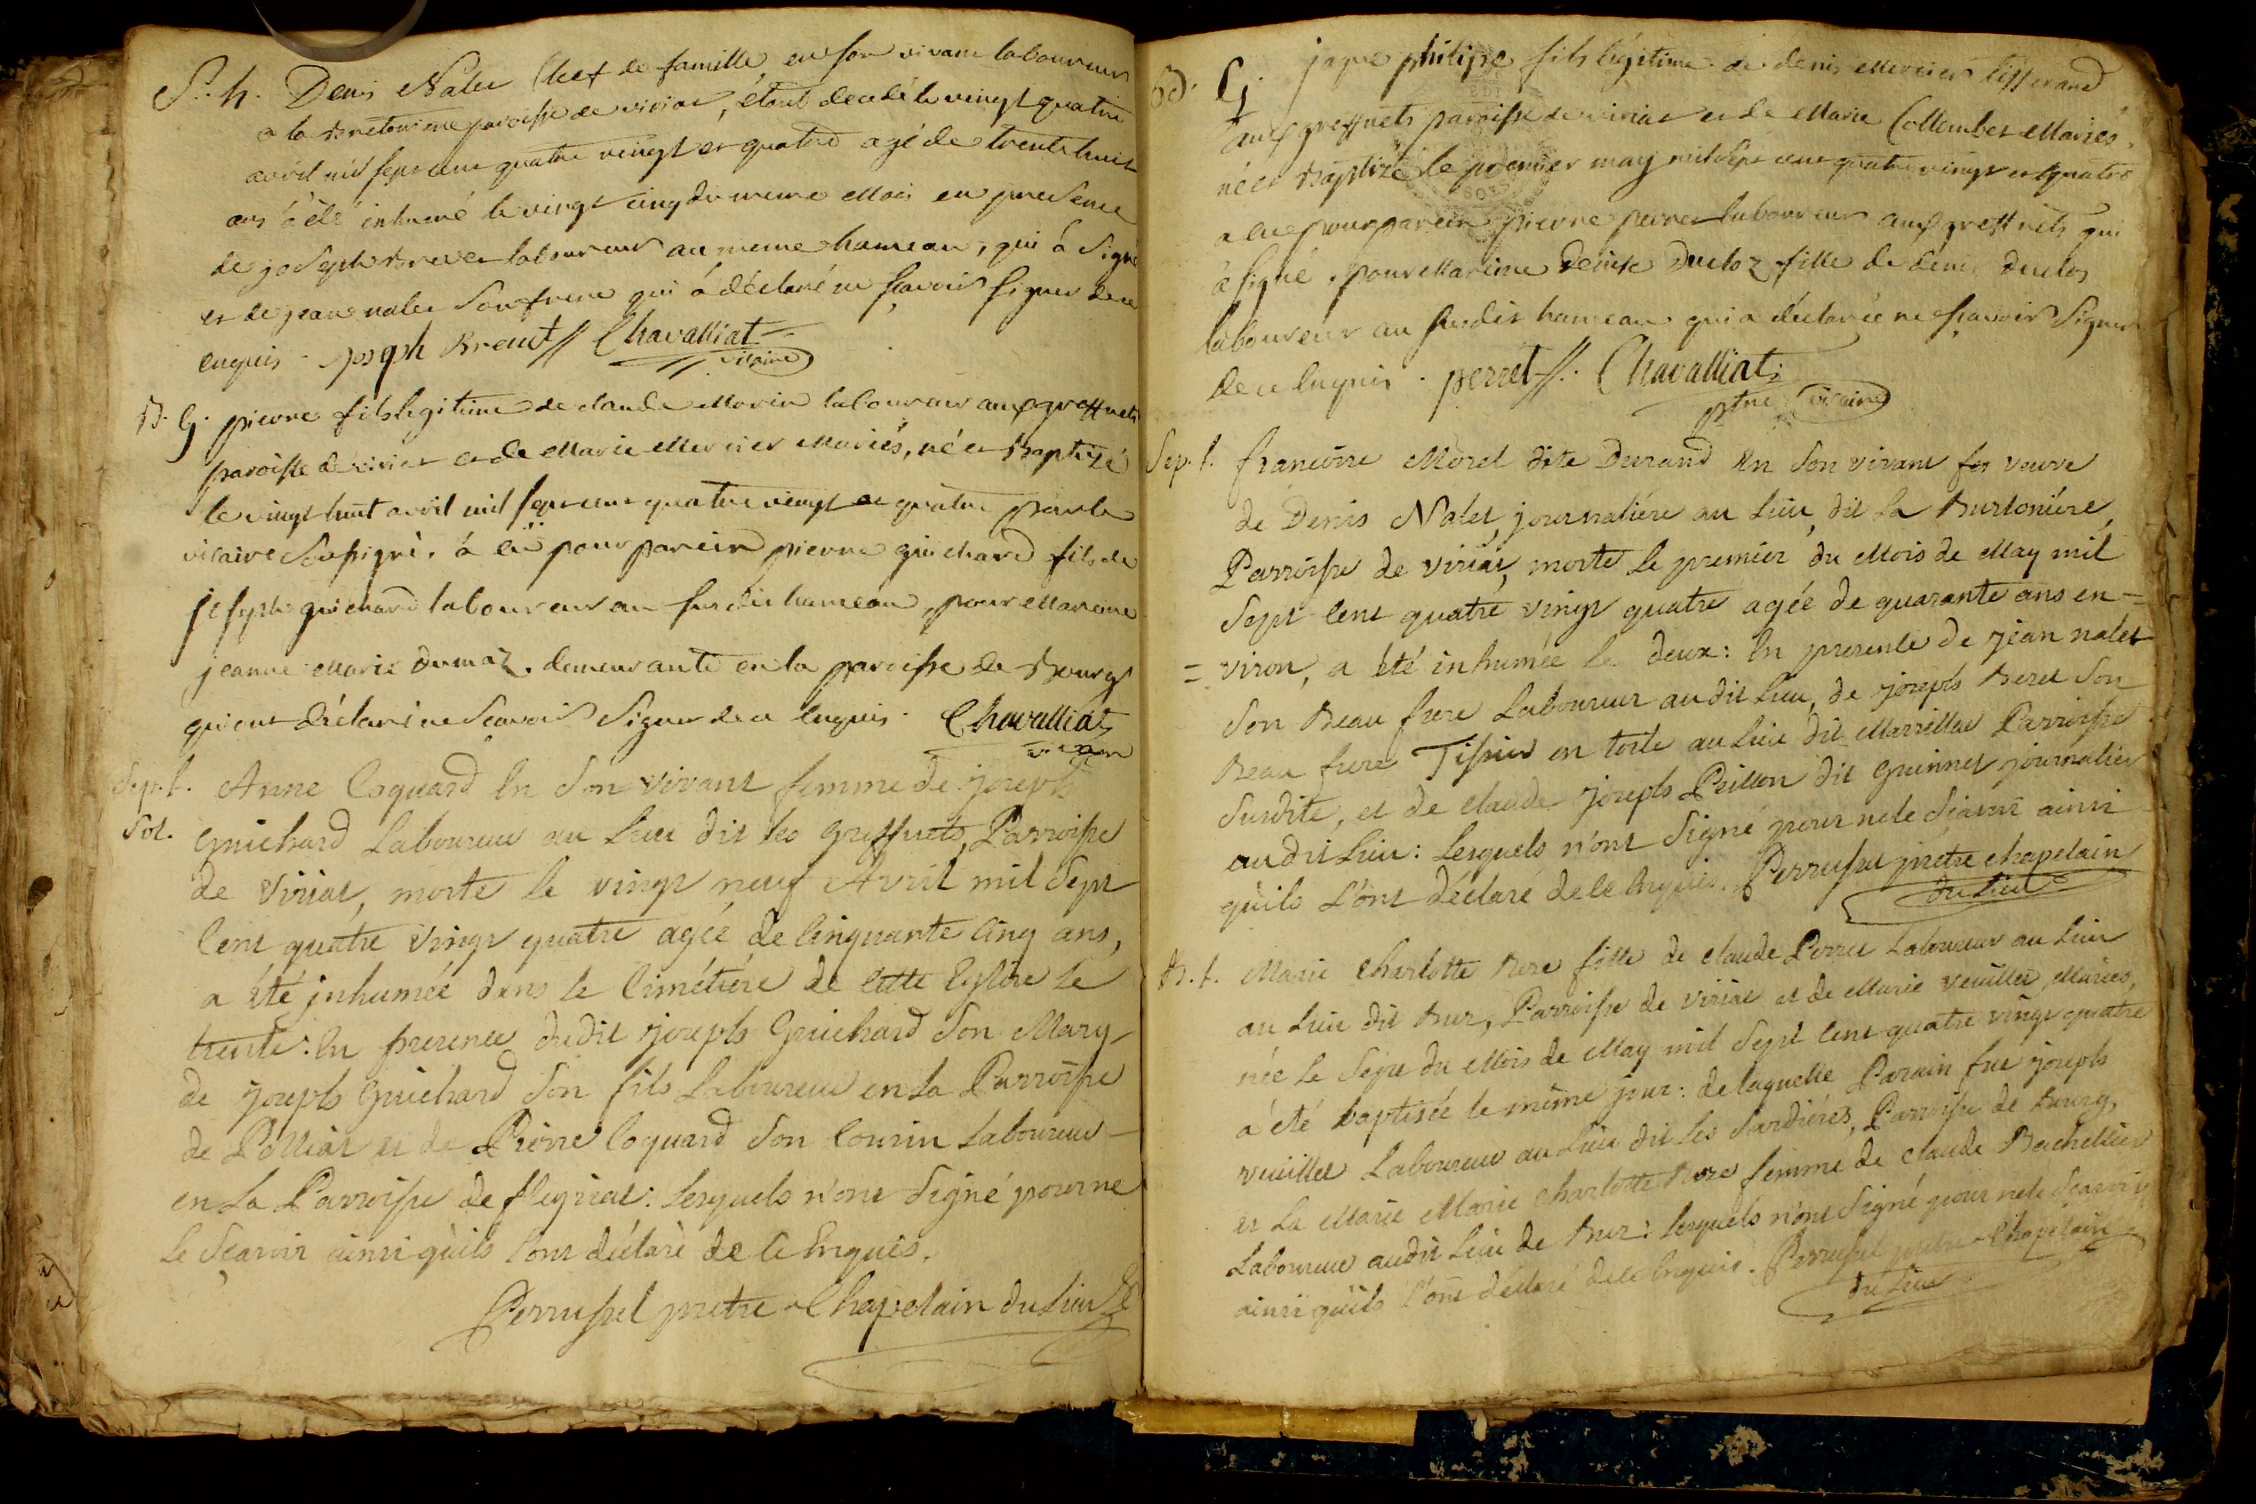 S. h. Denis Nalet Chef de famille en son vivant laboureur
a la Bretonniere paroisse de viriat, étant decedé le vingt quatre
avril mil sept cent quatre vingt et quatre agé de trente huit
ans à été inhumé le vingt cinq du meme Mois en presence
de joseph Brevet laboureur au meme hameau, qui à signé
et de jean nalet son frere qui à déclaré ne sçavoir signer de ce
enquis. joseph Brevet Chavalliat
vicaire
B. G. pierre fils legitime de claude Morin laboureur aux greffets
paroisse de viriat et de Marie Mercier Mariés, né et Baptizé
le vingt huit avril mil sept cent quatre vingt et quatre par le
vicaire soussigné. à eü pour parein pierre guichard fils de
joseph guichard laboureur au susdit hameau, pour Mareine
jeanne Marie dumaz. demeurante en la paroisse de Bourg
qui ont déclaré ne Scavoir Signer de ce enquis. Chavalliat
vicaire
Sep. f. Anne Coquard En Son vivant femme de joseph
Sol. Guichard Laboureur au Lieu dit les greffets, Parroisse
de Viriat, morte le vingt neuf Avril mil Sept
Cent quatre Vingt quatre agée de Cinquante Cinq ans,
a été jnhumée dans le Cimétiére de Cette Eglise le
trente: En presence dudit joseph Guichard Son Mary,
de joseph Guichard Son fils Laboureur en La Parroisse
de Polliat et de Pierre Coquard Son Cousin Laboureur
en La Parroisse de fleyriat: Lesquels n'ont Signé pour ne
Le Sçavoir ainsi qu'ils l'ont déclaré de Ce Enquis.
Perrussel prètre Chapelain du Lieu
G. jaque philipe fils légitime de denis Mercier tisserand
aux greffets paroisse de viriat et de Marie Collomber Mariés,
né et Baptizé le premier may mil sept cent quatre vingt et quatre
a eu pour parein pierre perret laboureur aux greffets qui
à signé, pour Mareine denise Ducloz fille de denis duclos
laboureur au susdit hameau qui a déclarée ne sçavoir signer
de ce Enquis. perret Chavalliat
ptre vicaire
Sep. f. françoise Morel dite Durand En Son vivant veuve
de Denis Nalet journaliére au Lieu dit La Burtoniére,
Parroisse de Viriat, morte Le premier du Mois de May mil
Sept Cent quatre vingt quatre agée de quarante ans en=
=viron, a été inhumée le deux: En presence de jean nalet
Son Beau frere Laboureur audit Lieu, de joseph Son
Beau frere Tissier en toile au Lieu dit Parroisse
Susdite, et de Claude joseph Peillon dit Guinnet journalier
audit Lieu: Lesquels n'ont Signé pour ne le Sçavoir ainsi
qu'ils l'ont déclaré de Ce Enquis. Perrussel prètre chapelain
du Lieu
B. f. Marie Charlotte fille de Claude Perret Laboureur au Lieu
au Lieu dit Bur, Parroisse de Viriat et de Marie Veuillet Mariés,
née Le Sept du Mois de May mil Sept Cent quatre vingt quatre
a été baptisée le même jour: de laquelle Parain fut joseph
veuillet Laboureur au Lieu dit Les Sardiéres, Parroisse de Bourg,
et La Marie Marie Charlotte femme de Claude Bachellier
Laboureur audit Lieu de Bur: Lesquels n'ont Signé pour ne le Sçavoir
ainsi qu'ils l'ont déclaré de Ce Enquis. Perrussel prètre Chapelain
du Lieu